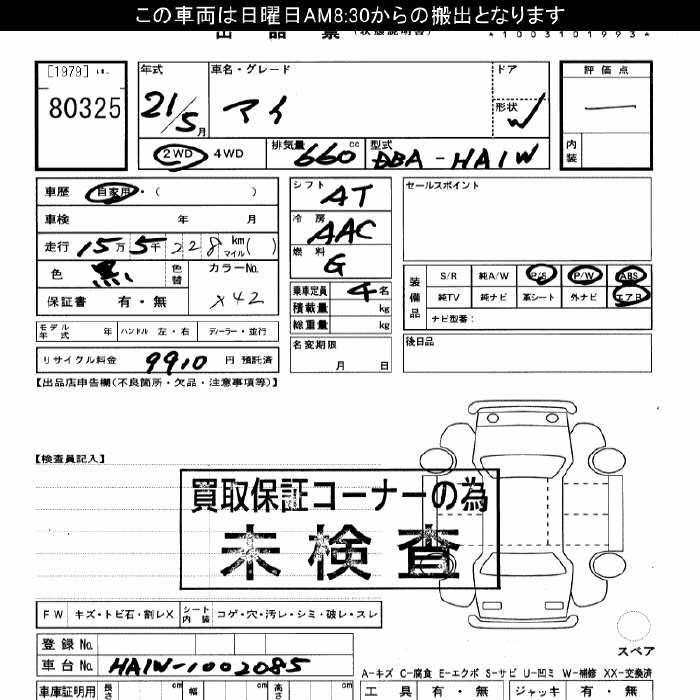 この車両は日曜日AM8:30からの搬出となります
出品票(状態説明書)
*1003101993*
[1979]
80325
年式
21/5月
車名・グレード
アイ
ドア
形状
W
評価点
—
内装
2WD 4WD
排気量 660cc
型式 DBA-HA1W
車歴 自家用・( )
車検 年 月
走行 15万5千228km マイル( )
色 黒 色替 カラーNo.
X42
保証書 有・無
シフト AT
冷房 AAC
燃料 G
乗車定員 4名
積載量 kg
総重量 kg
セールスポイント
装備品 S/R 純A/W P/S P/W ABS
純TV 純ナビ 革シート 外ナビ エアB
ナビ型番:
モデル年式 年 ハンドル 左・右 ディーラー・並行
名変期限 月 日
後日品
リサイクル料金 9910 円 預託済
【出品店申告欄(不良箇所・欠品・注意事項等)】
【検査員記入】
買取保証コーナーの為
未検査
FW キズ・トビ石・割レX シート内装 コゲ・穴・汚レ・シミ・破レ・スレ
スペア
登録No.
車台No. HA1W-1002085
A-キズ C-腐食 E-エクボ S-サビ U-凹ミ W-補修 XX-交換済
車庫証明用 長さ cm 幅 cm 高さ cm
工具 有・無 ジャッキ 有・無